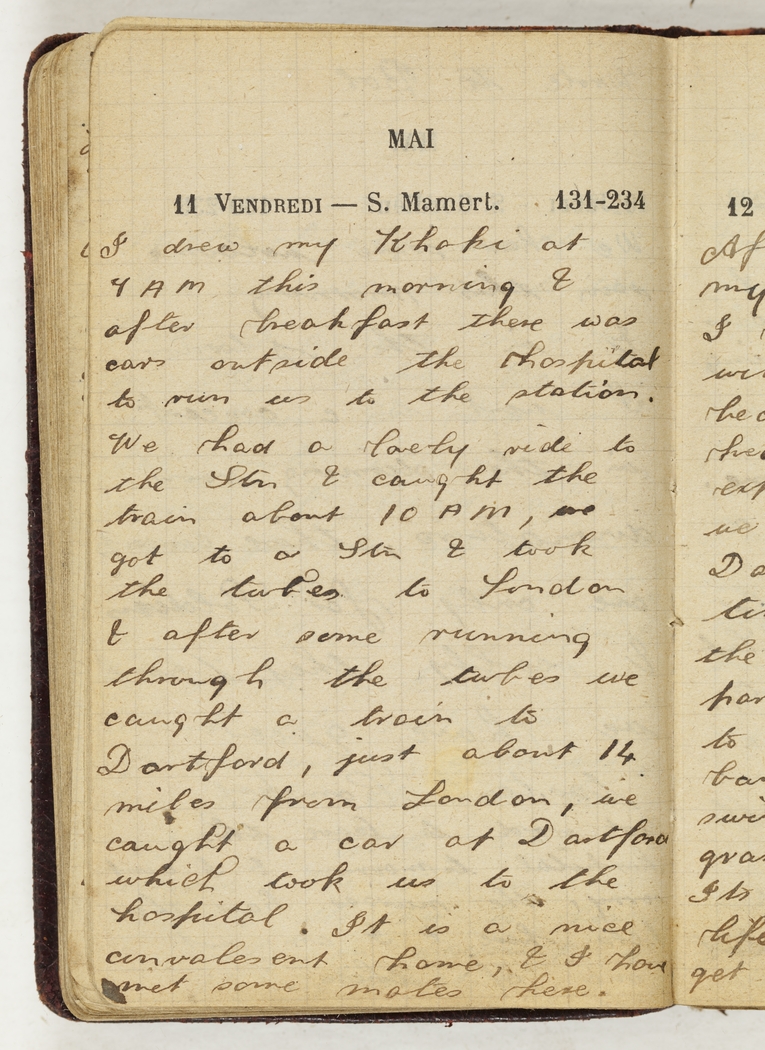 MAI
11 VENDREDI — S. Mamert. 131-234
I drew my Khaki at
7 AM this morning &
after breakfast there was
cars outside the hospital
to run us to the station.
We had a lovely ride to
the Stn & caught the
train about 10 AM, we
got to a Stn & took
the tubes to London
& after some running
through the tubes we
caught a train to
Dartford, just about 14
miles from London, we
caught a car at Dartford
which took us to the
hospital. It is a nice
convalesent home, & I have
met some mates here.
12
my
I
we
Da
the
to
gra
Its
life
get